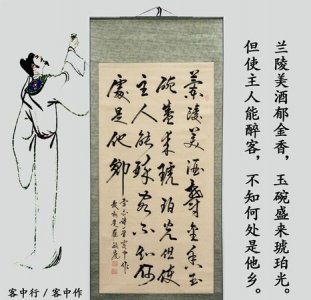 兰陵美酒郁金香，玉碗盛来琥珀光。
但使主人能醉客，不知何处是他乡。
蘭陵美酒鬱金香玉
碗盛来琥珀光但使
主人能醉客不知何
處是他鄉
客中行 / 客中作